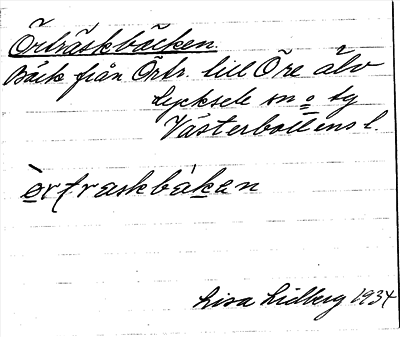 Örträskbäcken.
Bäck från Örtr. till Öre älv
Lycksele sn o tg
Västerbottens l.
èrtraskbàkən
Lisa Lidberg 1934